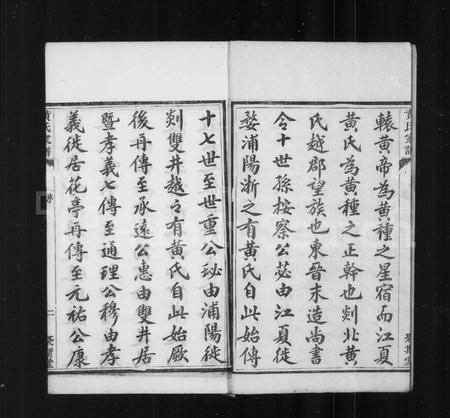 轅黃帝為黃種之星宿而江夏
黃氏為黃種之正幹也剡北黃
氏越郡望族也東晉末造尚書
令十世孫按察公苾由江夏徙
婺浦陽浙之有黃氏自此始傳
黃氏家譜
十七世至世重公珌由浦陽徙
剡雙井越之有黃氏自此始厥
後再傳至承遠公惠由雙井居
暨孝義七傳至通理公穆由孝
義徙居花亭再傳至元祐公康
黃氏家譜
二